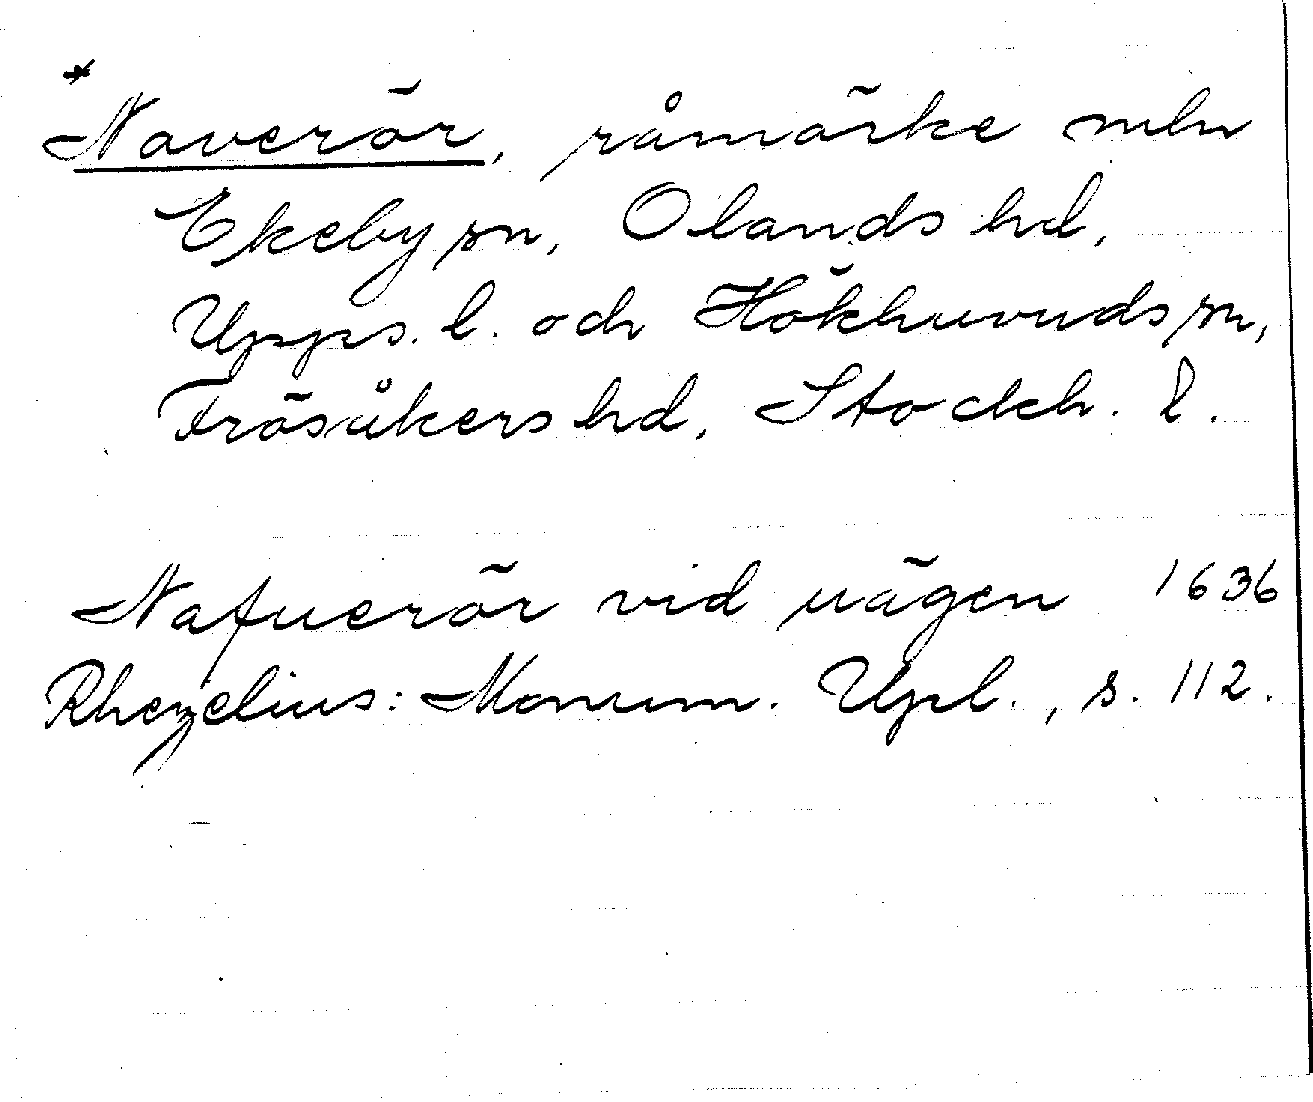 *
Naverör, råmärke mln
Ekeby sn, Olands hd,
Upps. l. och Hökhuvuds sn,
Frösåkers hd, Stockh. l.
Nafuerör vid uägen 1636
Rhezelius: Monum. Upl., s. 112.